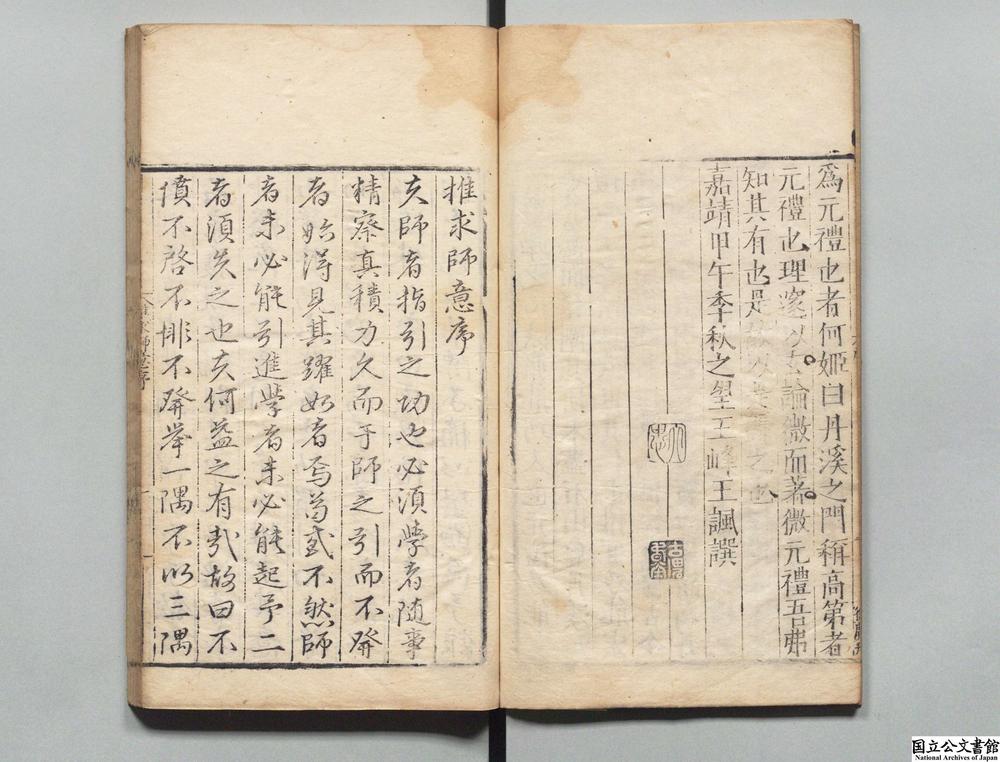 為元禮也者何姬曰丹溪之門稱高第者
元禮也理邃以玄論微而著微元禮吾弗
知其有也是故以
嘉靖甲午季秋之望玉峰王諷譔
推求師意序
夫師者指引之功也必須學者隨事
精察真積力久而于師之引而不發
者始得見其躍如者焉苟或不然師
者未必能引進學者未必能起予二
者須失之也夫何益之有哉故曰不
憤不啓不悱不發举一隅不以三隅
国立公文書館
National Archives of Japan